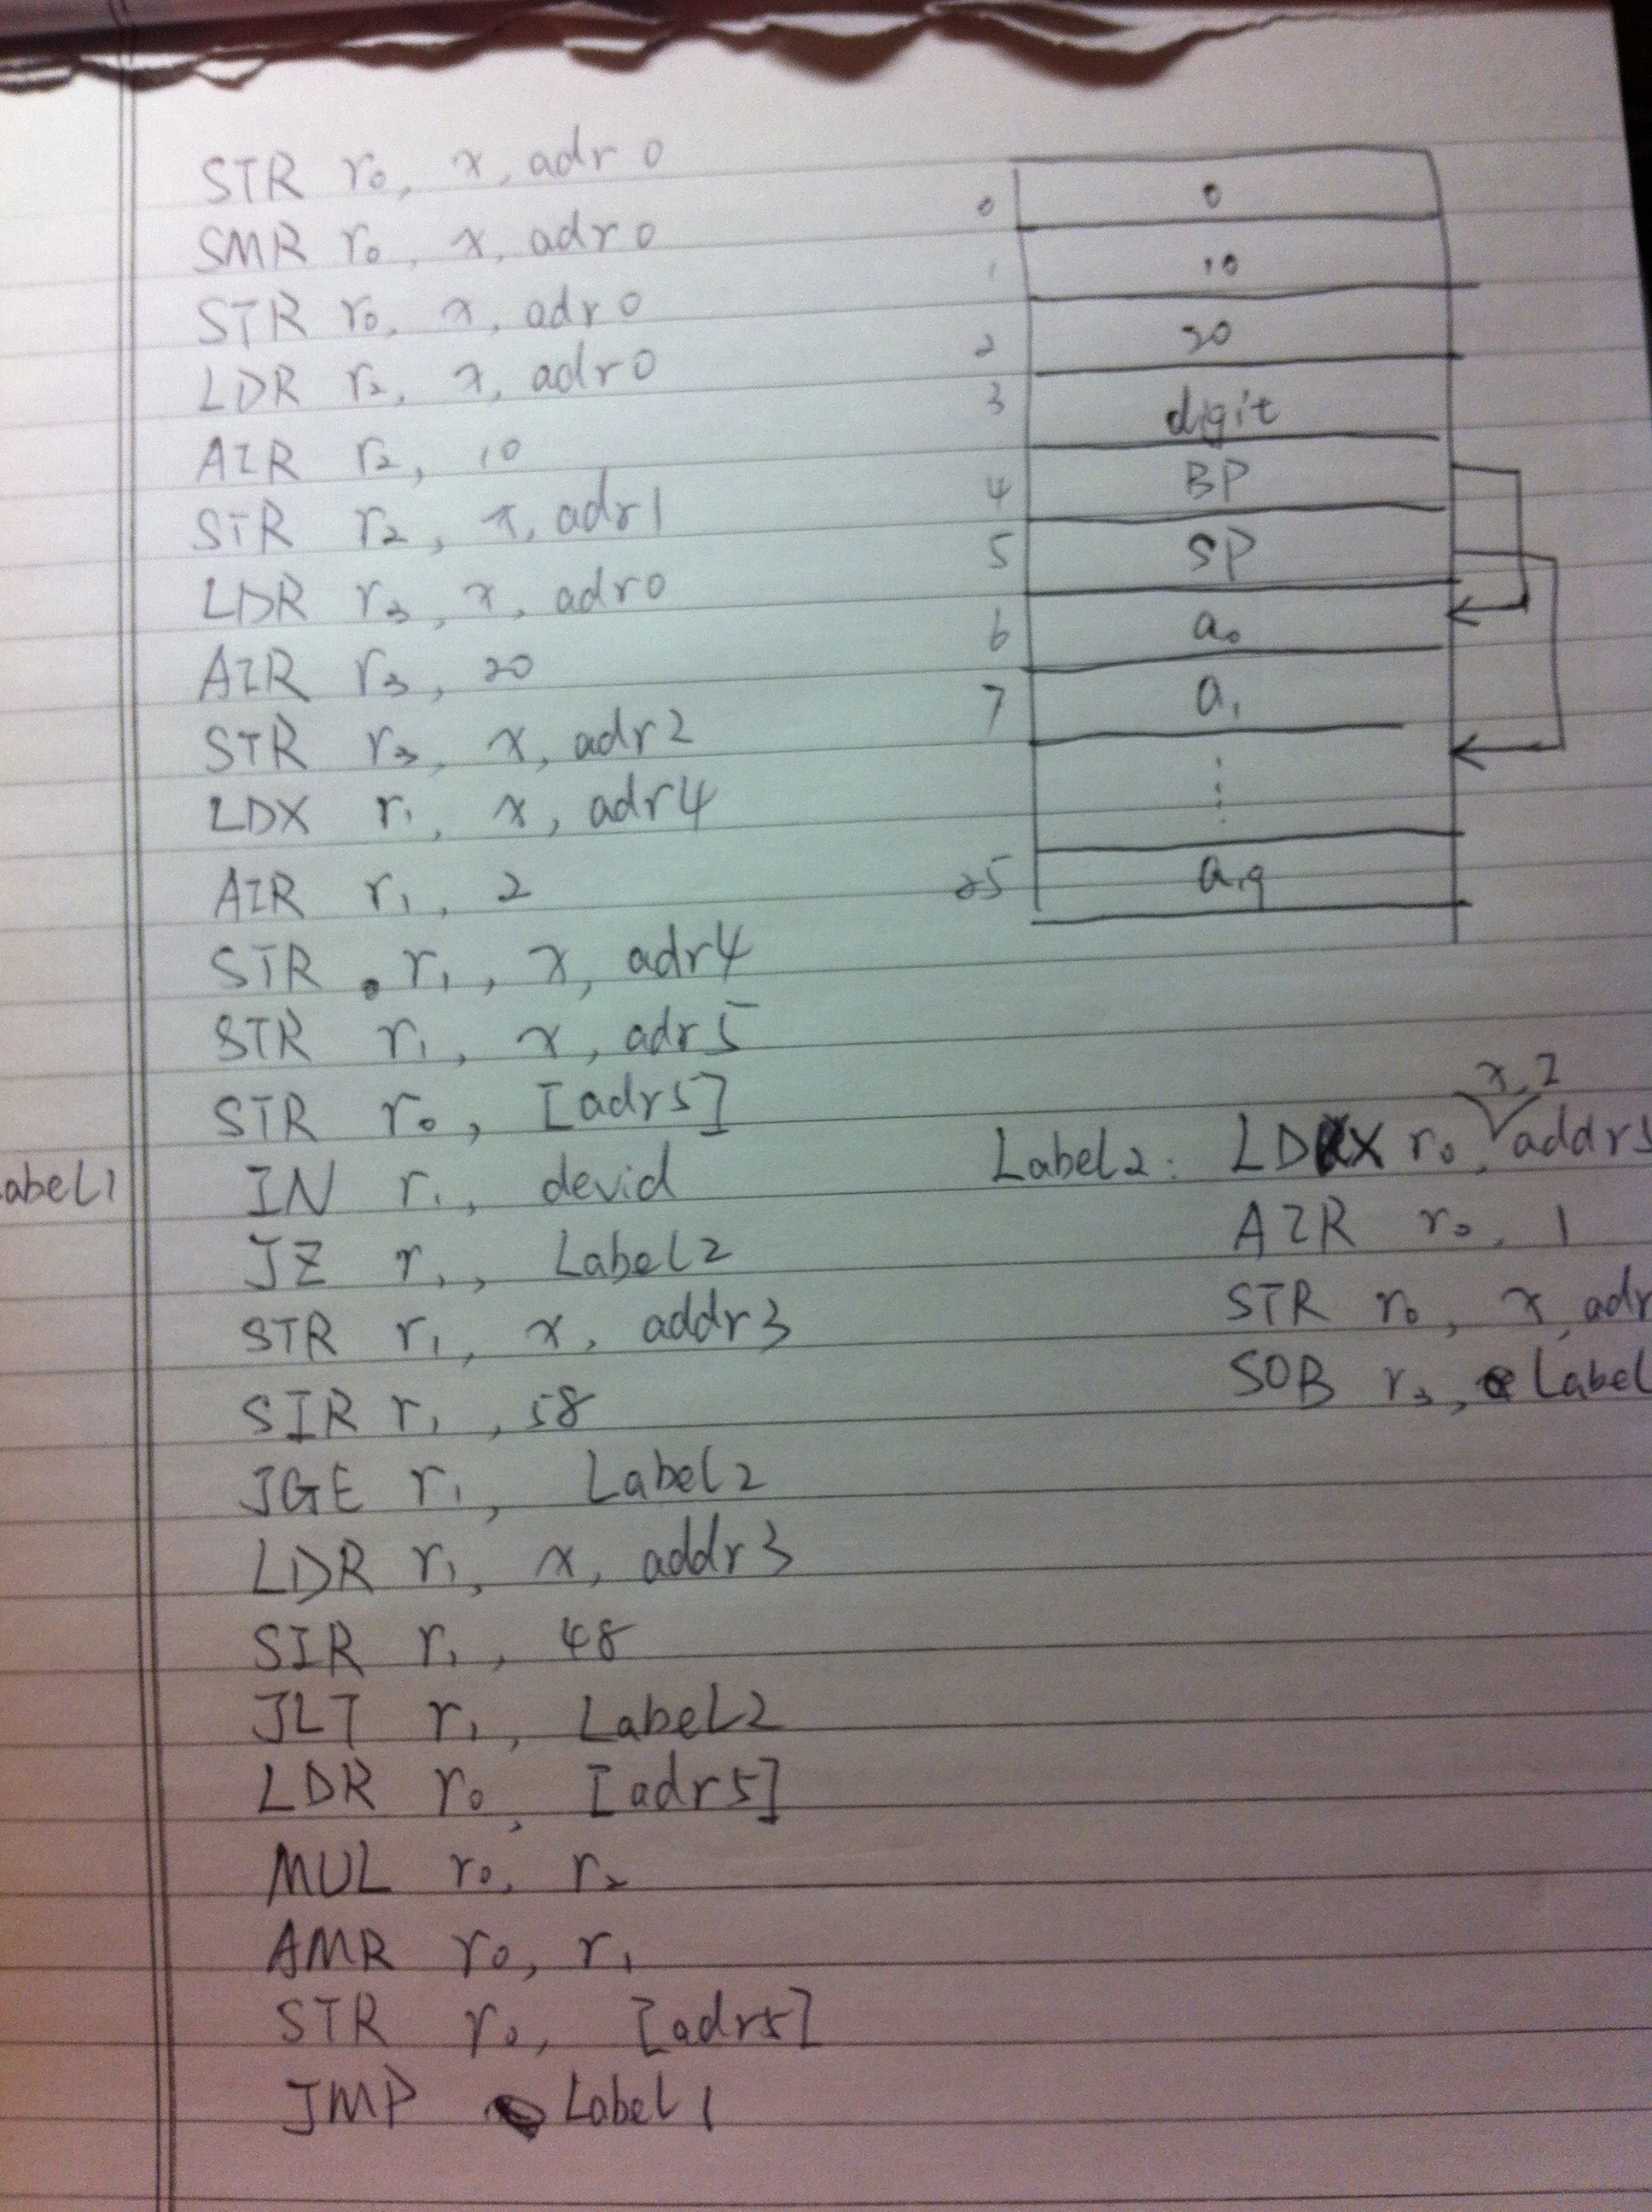 STR r0, x, adr0
SMR r0, x, adr0
STR r0, x, adr0
LDR r2, x, adr0
AIR r2, 10
STR r2, x, adr1
LDR r3, x, adr0
AIR r3, 20
STR r3, x, adr2
LDX r1, x, adr4
AIR r1, 2
STR r1, x, adr4
STR r1, x, adr5
STR r0, [adr5]
abel1 IN r1, devid
JZ r1, Label2
STR r1, x, addr3
SIR r1, 58
JGE r1, Label2
LDR r1, x, addr3
SIR r1, 48
JLT r1, Label2
LDR r0, [adr5]
MUL r0, r2
AMR r0, r1
STR r0, [adr5]
JMP Label1
0 0
1 10
2 20
3 digit
4 BP
5 SP
6 a0
7 a1
⋮
25 a19
x, 2
Label2: LDX r0, addr5
AIR r0, 1
STR r0, x, adr
SOB r3, Label